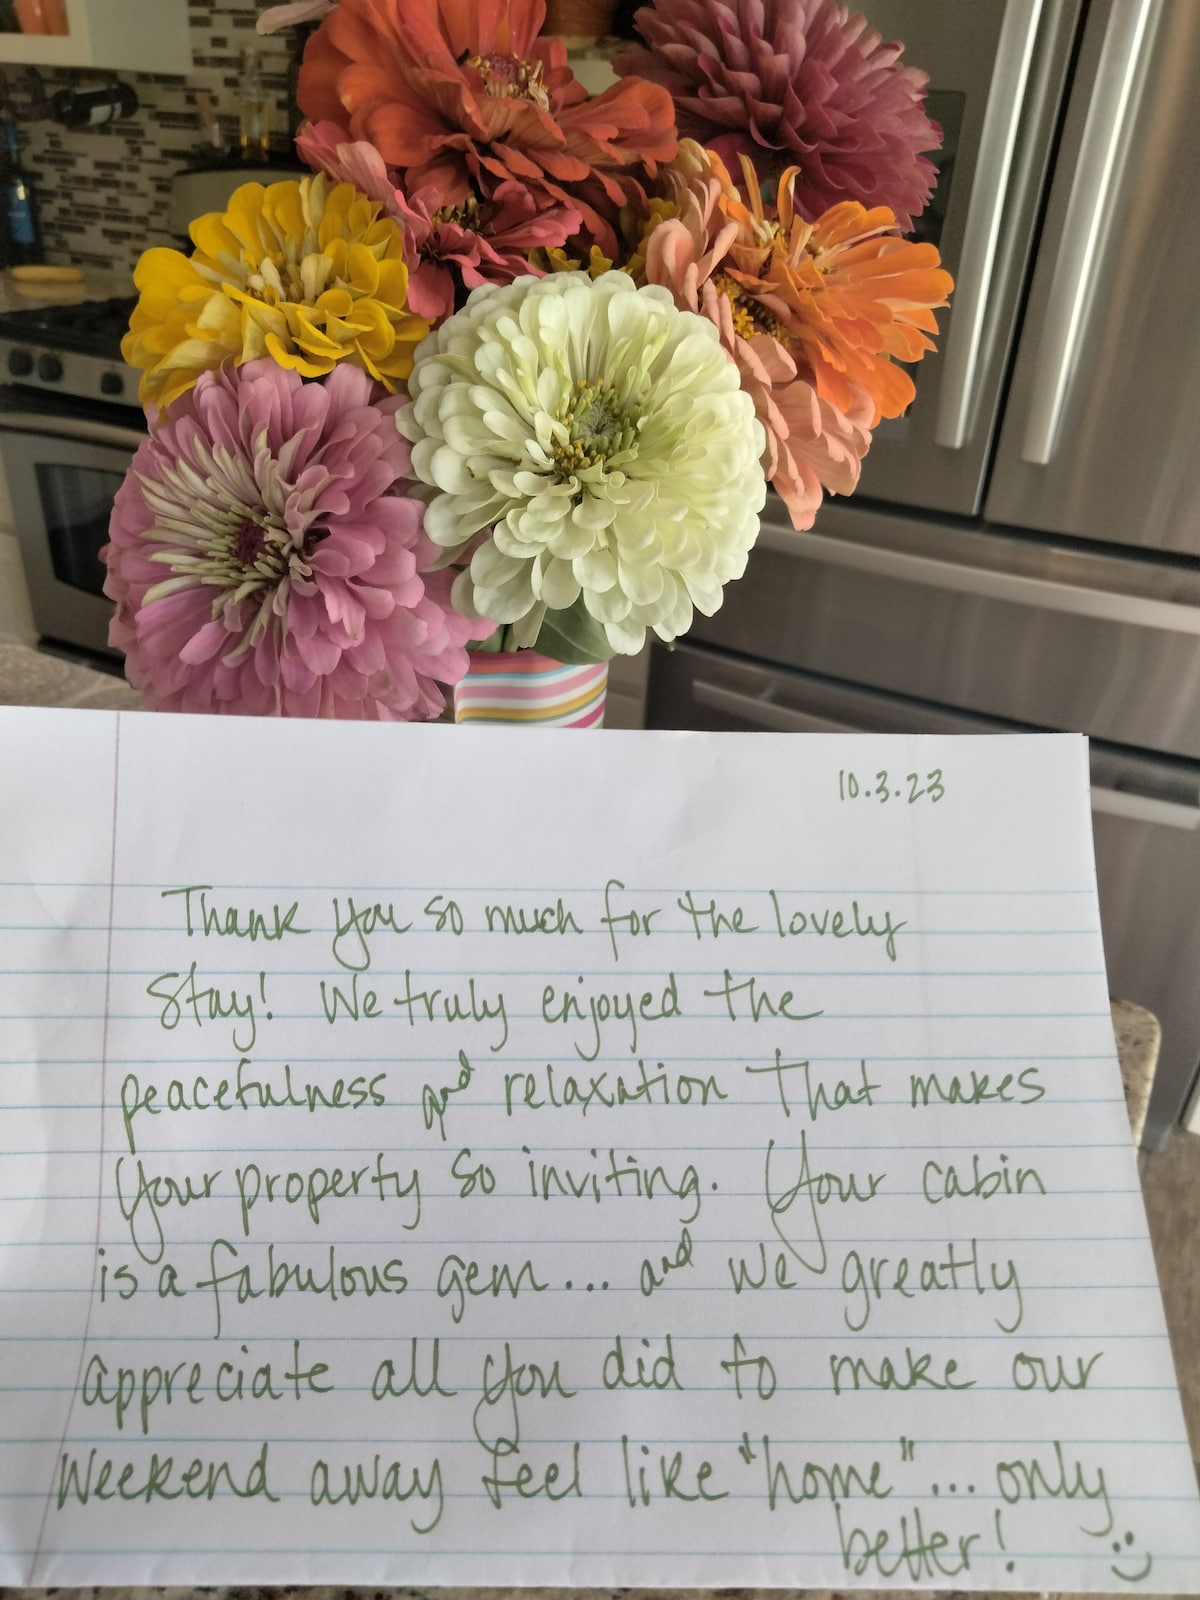 10.3.23
Thank you so much for the lovely
Stay! We truly enjoyed the
peacefulness and relaxation that makes
your property so inviting. Your cabin
is a fabulous gem... and we greatly
appreciate all you did to make our
weekend away feel like "home"... only
better! :)